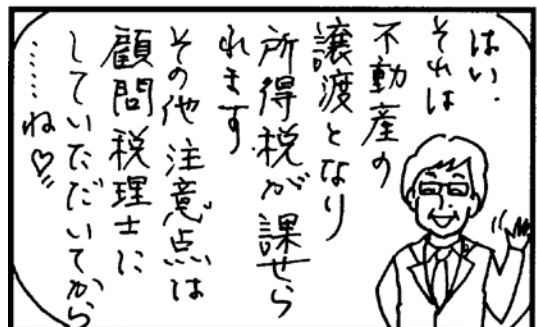 はい.
それは
不動産の
譲渡となり
所得税が課せら
れます
その他注意点は
顧問税理士に
していただいてから
……ね♡